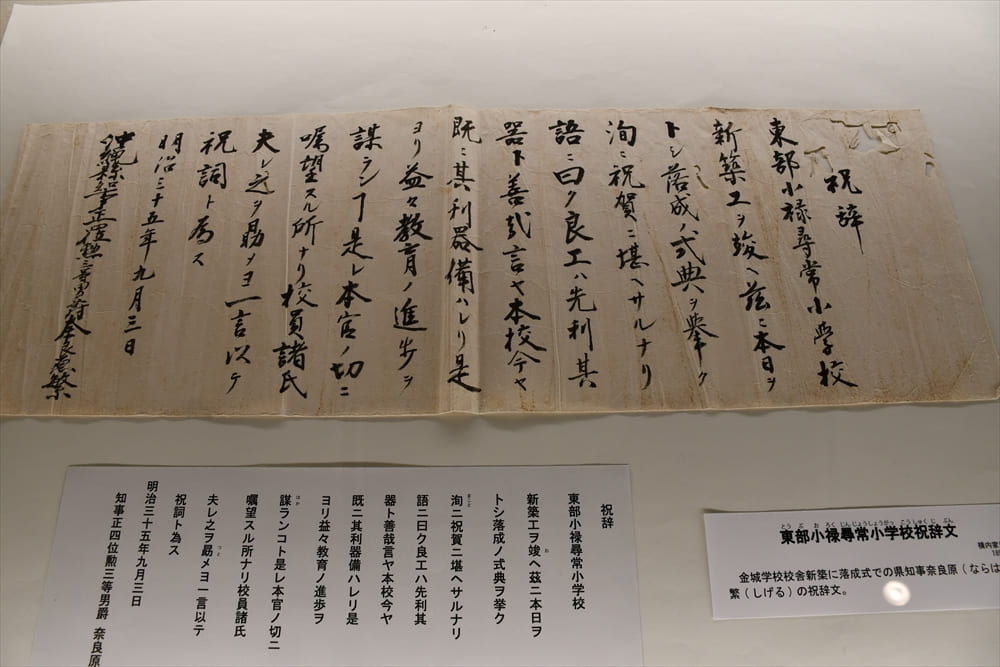 祝辞
東部小禄尋常小学校
新築工ヲ竣ヘ茲ニ本日ヲ
トシ落成ノ式典ヲ挙ク
洵ニ祝賀ニ堪ヘサルナリ
語ニ曰ク良工ハ先利其
器ト善哉言ヤ本校今ヤ
既ニ其利器備ハレリ是
ヨリ益々教育ノ進歩ヲ
謀ランヿ是レ本官ノ切ニ
嘱望スル所ナリ校員諸氏
夫レ之ヲ勗メヨ一言以テ
祝詞ト為ス
明治三十五年九月三日
沖縄縣知事正四位勲三等男爵奈良原繁
祝辞
東部小禄尋常小学校
新築工ヲ竣ヘ茲ニ本日ヲ
トシ落成ノ式典ヲ挙ク
洵ニ祝賀ニ堪ヘサルナリ
語ニ曰ク良工ハ先利其
器ト善哉言ヤ本校今ヤ
既ニ其利器備ハレリ是
ヨリ益々教育ノ進歩ヲ
謀ランコト是レ本官ノ切ニ
嘱望スル所ナリ校員諸氏
夫レ之ヲ勗メヨ一言以テ
祝詞ト為ス
明治三十五年九月三日
知事正四位勲三等男爵 奈良原
東部小禄尋常小学校祝辞文
金城学校校舎新築に落成式での県知事奈良原(ならは
繁(しげる)の祝辞文。